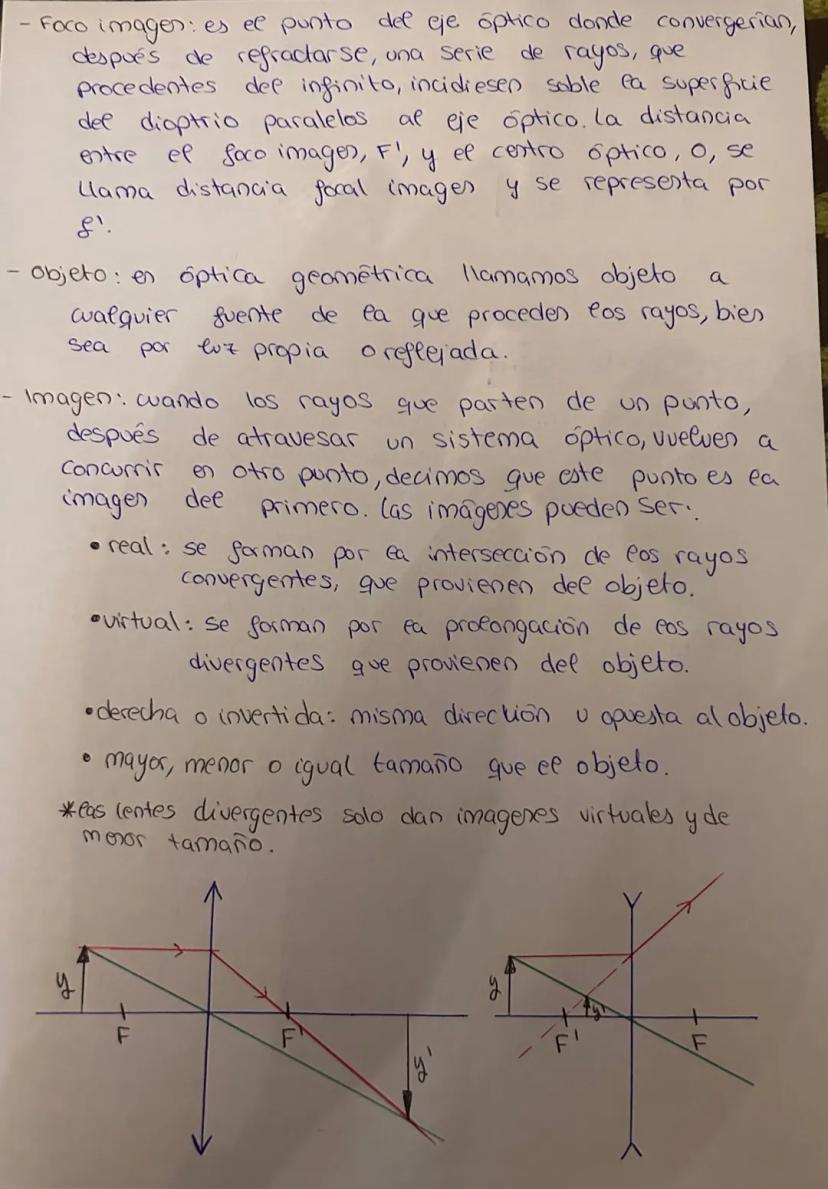 - Foco imagen: es el punto del eje óptico donde convergerían,
después de refractarse, una serie de rayos, que
procedentes del infinito, incidiesen soble la superficie
del dioptrio paralelos al eje óptico. La distancia
entre el foco imagen, F', y el centro óptico, O, se
llama distancia focal imagen y se representa por
f'.
- Objeto: en óptica geométrica llamamos objeto a
cualquier fuente de la que proceden los rayos, bien
sea por luz propia o reflejada.
- Imagen: cuando los rayos que parten de un punto,
después de atravesar un sistema óptico, vuelven a
concurrir en otro punto, decimos que este punto es la
imagen del primero. Las imágenes pueden ser:
• real: se forman por la intersección de los rayos
convergentes, que provienen del objeto.
• virtual: se forman por la prolongación de los rayos
divergentes que provienen del objeto.
• derecha o invertida: misma dirección u opuesta al objeto.
• mayor, menor o igual tamaño que el objeto.
*las lentes divergentes solo dan imagenes virtuales y de
menor tamaño.
y F F' y'
y F' y' F